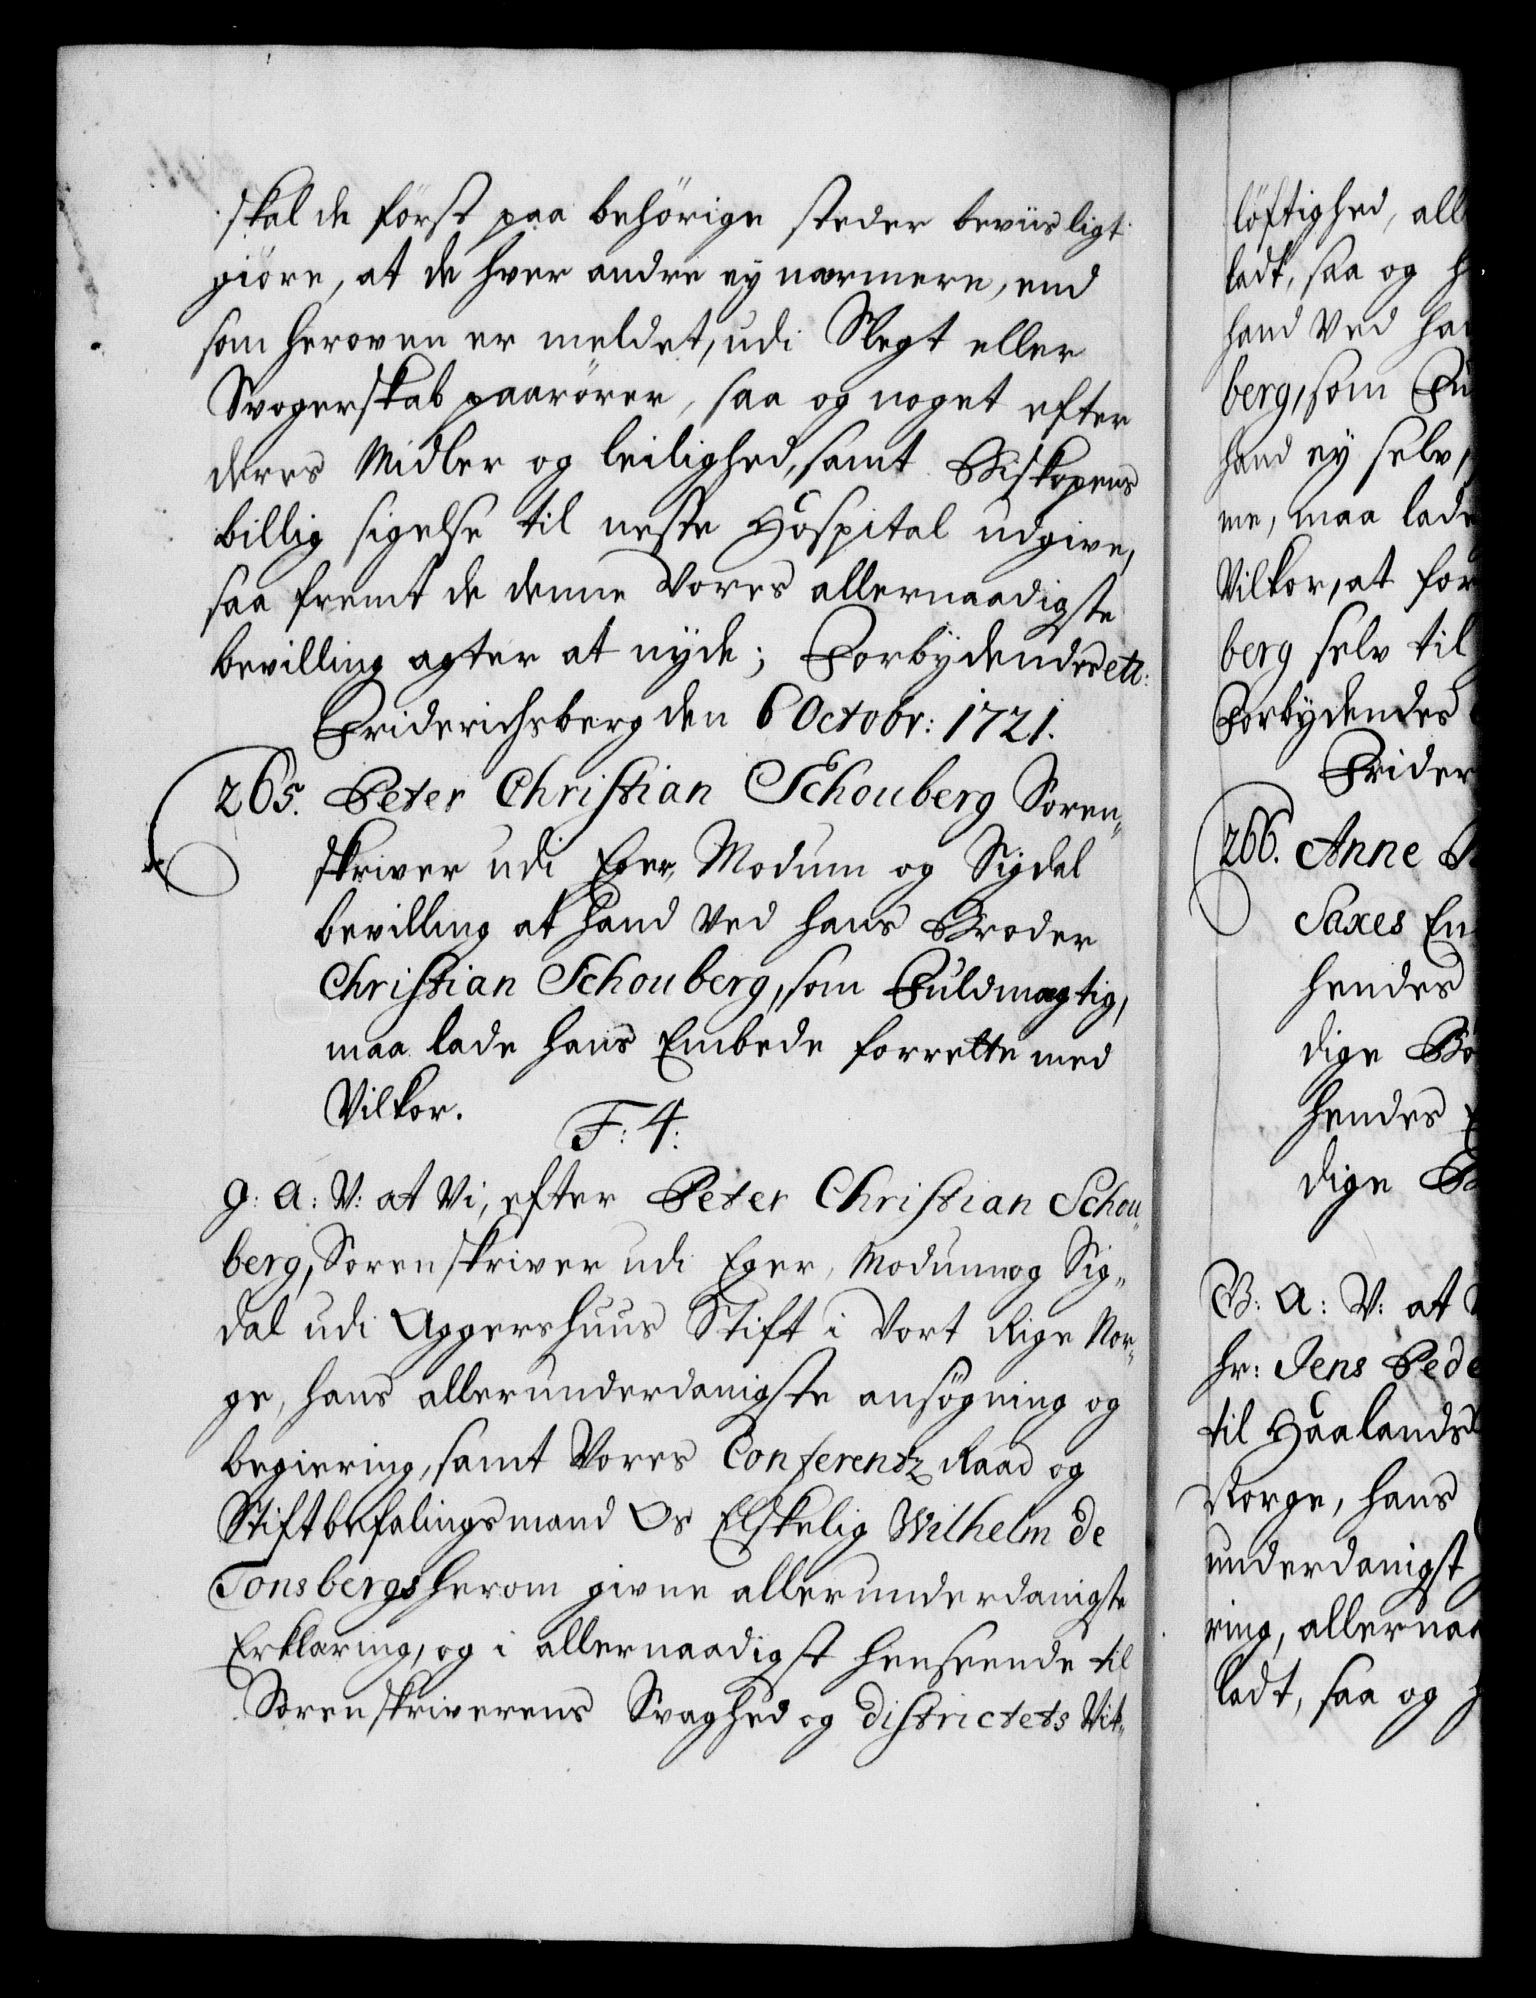 skal de först paa behörige steder beviisligt
giöre, at de hver andre ey nærmere, end
som heroven er meldet, udi Slegt eller
Svogerskab paarörer, saa og noget efter
deres Midler og leilighed, samt Biskopens
billig sigelse til neste Hospital udgive,
saa fremt de denne Vores allernaadigste
bevilling agter at nyde; Forbydendes etc:
Friderichsberg den 6 Octobr: 1721.
265. Peter Christian Schouberg Soren„
skriver udi Eger, Modum og Sigdal
bevilling at hand ved hans Broder
Christian Schouberg, som Fuldmægtig,
maa lade hans Embede forrette med
Vilkor.
F: 4:
G: A: V: at Vi, efter Peter Christian Schou„
berg, Sorenskriver udi Eger, Modum og Sig„
dal udi Aggershuus Stift i Vort Rige Nor„
ge, hans allerunderdanigste ansögning og
begiering, samt Vores Conferentz Raad og
Stiftbefalingsmand Os Elskelig Wilhelm de
Tonsbergs herom givne allerunderdanigste
Erklæring, og i allernaadigst henseende til
Sorenskriverens Svaghed og districtets Vit„
löftighed, all
ladt, saa og h
hand ved ha
berg, som Fu
hand ey selv
me, maa lade
Vilkor, at for
berg selv til
Forbydendes
Frider
266. Anne
Saxes En
hendes
dige Bö
hendes
dige
G: A: V: at V
hr: Jens Pede
til Haalands
Norge, hans
underdanigst
ring, allernaa
ladt, saa og h